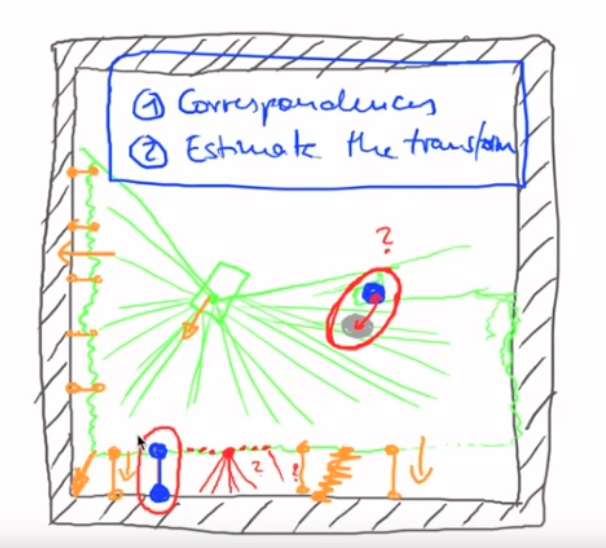 ① Correspondences
② Estimate the transform
?
? ?